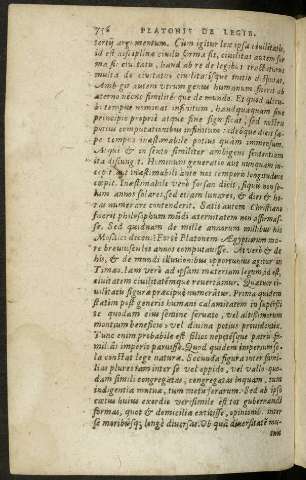 736 PLATONIS DE LEGIB.
tertij argumentum. Cùm igitur lex ipsa ciuilitatis,
id est disciplinæ ciuilis forma sit, ciuilitas autem for
ma sit ciuitatis, haud ab re de legibus tractaturus
multa de ciuitatis ciuilitatisque initio disputat.
Ambigit autem vtrum genus humanum sicut ab
æterno necne similiterque de mundo. Et quod altius
bi tempus nominat infinitum, haudquaquam sine
principio proprio atque fine significat, sed nostra
potius computatione infinitum: ideóque dicit sæ-
pe tempus inæstimabile potius quàm immensum.
Atqui & in sexto similiter ambigens sententiam
ita disiungit. Hominum generatio aut nunquam in-
cepit, aut inæstimabili ante nos temporis longitudine
cœpit. Inæstimabile verò forsan dicit, siquis non so-
lùm annos solares, sed etiam lunares, & dies & ho-
ras numerare contenderit. Satis autem Christiano
fuerit philosophum mundi æternitatem non affirmas-
se. Sed quidnam de mille annorum milibus his
Mosaici dicent? Fortè Platonem Ægyptiorum mo-
re breuiusculis annos computauisse. At verò & de
his, & de mundi illuuionibus opportunius agitur in
Timæo. Iam verò ad ipsam materiam legum, id est,
ciuitatem ciuilitatémque reuertamur. Quatuor ci-
uilitatis figuræ præcipuè numerantur. Prima quidem
statim post generis humani calamitatem in supersti-
te quodam eius semine seruato, vel altissimorum
montium beneficio, vel diuina potius prouidentia.
Tunc enim probabile est filios nepotésque patris fa-
miliâs imperio paruisse. Quod quidem imperium so-
la constat lege naturæ. Secunda figura inter fami-
lias plures tam inter se vel oppido, vel vallo quo-
dam simili congregatas, congregatas inquam, tum
indigentia mutua, tum metu ferarum. Sed ab ipso
cœtus huius exordio verisimile est tot gubernandi
formas, quot & domicilia extitisse, opinionibus inter
se moribúsque longè diuersas. Ob quam diuersitatem mu-
tuis